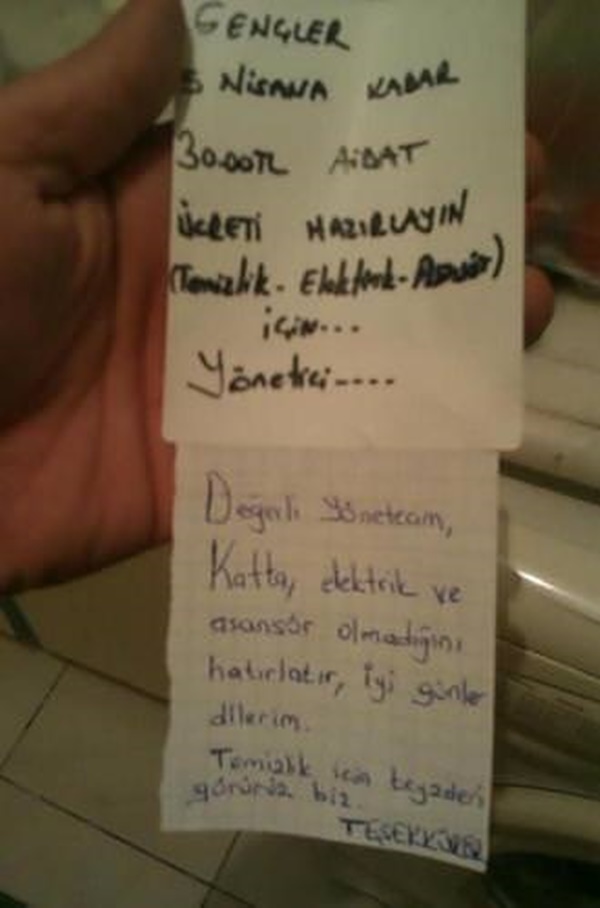 GENÇLER
5 NİSANA KADAR
30.00TL AİDAT
ÜCRETİ HAZIRLAYIN
(Temizlik - Elektrik - Asansör)
İÇİN...
Yönetici----
Değerli Yöneticim,
Katta, elektrik ve
asansör olmadığını
hatırlatır, iyi günler
dilerim.
Temizlik için teyzeden
görürüz biz.
TEŞEKKÜRLER